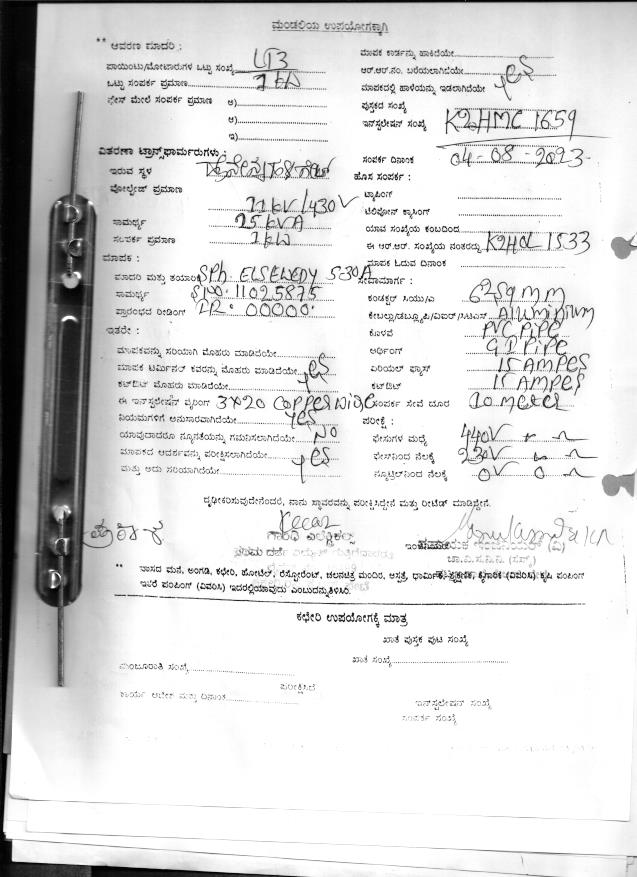 ಮಂಡಲಿಯ ಉಪಯೋಗಕ್ಕಾಗಿ
** ಆವರಣ ಮಾದರಿ :
ಪಾಯಿಂಟು/ಮೋಟಾರುಗಳ ಒಟ್ಟು ಸಂಖ್ಯೆ
ಒಟ್ಟು ಸಂಪರ್ಕ ಪ್ರಮಾಣ 1 kW
ಫೇಸ್ ಮೇಲೆ ಸಂಪರ್ಕ ಪ್ರಮಾಣ ಅ)
ಆ)
ಇ)
ವಿತರಣಾ ಟ್ರಾನ್ಸ್‌ಫಾರ್ಮರುಗಳು :
ಇರುವ ಸ್ಥಳ
ವೋಲ್ಟೇಜ್ ಪ್ರಮಾಣ
11 kV/430V
ಸಾಮರ್ಥ್ಯ 25 kVA
ಸಂಪರ್ಕ ಪ್ರಮಾಣ 1 kW
ಮಾಪಕ :
ಮಾದರಿ ಮತ್ತು ತಯಾರಿಕೆ SPh. ELSEWEDY 5-30A
ಸಾಮರ್ಥ್ಯ S NO: 11025875
ಪ್ರಾರಂಭದ ರೀಡಿಂಗ್ I.R: 00000.
ಇತರೇ :
ಮಾಪಕವನ್ನು ಸರಿಯಾಗಿ ಮೊಹರು ಮಾಡಿದೆಯೇ
ಮಾಪಕ ಟರ್ಮಿನಲ್ ಕವರನ್ನು ಮೊಹರು ಮಾಡಿದೆಯೇ yes
ಕಟ್‌ಔಟ್ ಮೊಹರು ಮಾಡಿದೆಯೇ
ಈ ಇನ್‌ಸ್ಟಲೇಷನ್ ವೈರಿಂಗ್ 3X20 COPPER WIRE
ನಿಯಮಗಳಿಗೆ ಅನುಸಾರವಾಗಿದೆಯೇ yes
ಯಾವುದಾದರೂ ನ್ಯೂನತೆಯನ್ನು ಗಮನಿಸಲಾಗಿದೆಯೇ NO
ಮಾಪಕದ ಆದರ್ಶವನ್ನು ಪರೀಕ್ಷಿಸಲಾಗಿದೆಯೇ yes
ಮತ್ತು ಅದು ಸರಿಯಾಗಿದೆಯೇ
ಮಾಪಕ ಕಾರ್ಡನ್ನು ಹಾಕಿದೆಯೇ
ಆರ್.ಆರ್.ನಂ. ಬರೆಯಲಾಗಿದೆಯೇ yes
ಮಾಪಕದಲ್ಲಿ ಹಾಳೆಯನ್ನು ಇಡಲಾಗಿದೆಯೇ
ಪುಸ್ತಕದ ಸಂಖ್ಯೆ
ಇನ್‌ಸ್ಟಲೇಷನ್ ಸಂಖ್ಯೆ K2HMC 1659
ಸಂಪರ್ಕ ದಿನಾಂಕ 04-08-2023
ಹೊಸ ಸಂಪರ್ಕ :
ಟ್ಯಾಪಿಂಗ್
ಟೆಲಿಫೋನ್ ಕ್ರಾಸಿಂಗ್
ಯಾವ ಸಂಖ್ಯೆಯ ಕಂಬದಿಂದ
ಈ ಆರ್.ಆರ್. ಸಂಖ್ಯೆಯ ನಂತರದ್ದು K2HCL 1533
ಮಾಪಕ ಓದುವ ದಿನಾಂಕ
ಸೇವಾಮಾರ್ಗ :
ಕಂಡಕ್ಟರ್ ಸಿಯು/ಎ 6 2Sq mm
Aluminium
ಕೊಳವೆ PVC PIPE
ಅರ್ಥಿಂಗ್ G I PIPE
ಏರಿಯಲ್ ಫ್ಯೂಸ್ 15 AMPES
ಕಟ್‌ಔಟ್ 15 AMPES
ಸಂಪರ್ಕ ಸೇವೆ ದೂರ 10 meter
ಪರೀಕ್ಷೆ :
ಫೇಸುಗಳ ಮಧ್ಯೆ 440V
ಫೇಸ್‌ನಿಂದ ನೆಲಕ್ಕೆ 230V
ನ್ಯೂಟ್ರಲ್‌ನಿಂದ ನೆಲಕ್ಕೆ 0V
ದೃಢೀಕರಿಸುವುದೇನೆಂದರೆ, ನಾನು ಸ್ಥಾವರವನ್ನು ಪರೀಕ್ಷಿಸಿದ್ದೇನೆ ಮತ್ತು ರೀಟೆಡ್ ಮಾಡಿದ್ದೇನೆ.
ಗಾಂಧಿ ಎಲೆಕ್ಟ್ರಿಕಲ್ಸ್
** ವಾಸದ ಮನೆ, ಅಂಗಡಿ, ಕಛೇರಿ, ಹೋಟೆಲ್, ರೆಸ್ಟೋರೆಂಟ್, ಚಲನಚಿತ್ರ ಮಂದಿರ, ಆಸ್ಪತ್ರೆ, ಧಾರ್ಮಿಕ, ಶೈಕ್ಷಣಿಕ, ಕೈಗಾರಿಕೆ (ವಿವರಿಸಿ) ಕೃಷಿ ಪಂಪಿಂಗ್
ಇತರೆ ಪಂಪಿಂಗ್ (ವಿವರಿಸಿ) ಇದರಲ್ಲಿಯಾವುದು ಎಂಬುದನ್ನುತಿಳಿಸಿರಿ.
ಕಛೇರಿ ಉಪಯೋಗಕ್ಕೆ ಮಾತ್ರ
ಖಾತೆ ಪುಸ್ತಕ ಪುಟ ಸಂಖ್ಯೆ
ಖಾತೆ ಸಂಖ್ಯೆ
ಮಂಜೂರಾತಿ ಸಂಖ್ಯೆ
ಪರೀಕ್ಷಿಸಿದೆ
ಕಾರ್ಯ ಆದೇಶ ಮತ್ತು ದಿನಾಂಕ
ಇನ್‌ಸ್ಟಲೇಷನ್ ಸಂಖ್ಯೆ
ಸಂಪರ್ಕ ಸಂಖ್ಯೆ